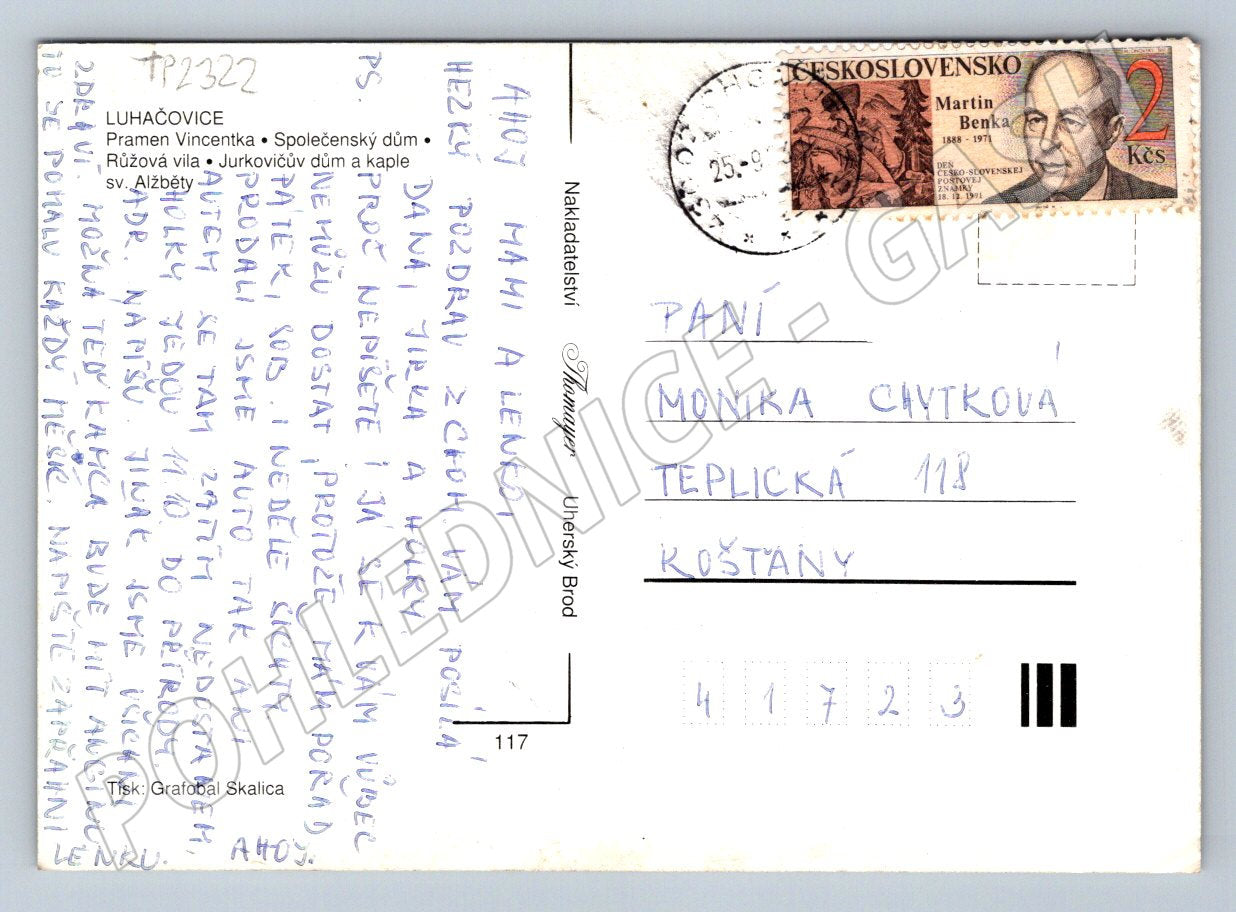 TP2322
LUHAČOVICE
Pramen Vincentka • Společenský dům •
Růžová vila • Jurkovičův dům a kaple
sv. Alžběty
AHOJ MAMI A LENČO,
HEZKÝ POZDRAV Z CHOM VÁM POSÍLÁ
DANA, JIRKA A HOLKY.
PS. PROČ NEPIŠETE I JÁ SE K VÁM VŮBEC
NEMŮŽU DOSTAT, PROTOŽE MÁM POŘÁD
PÁTEK, SOB. I NEDĚLE ŠICHTY
PRODALI JSME AUTO TAK ANI
AUTEM SE TAM ZATÍM NEDOSTANEM.
HOLKY JEDOU 11.10. DO PŘÍRODY
ADR. NAPÍŠU. JINAK JSME VŠICHNI
ZDRAVÍ. MOŽNÁ TEĎ KAMČA BUDE MÍT ANGÍNU
TO SE POMALU KAŽDÝ MĚSÍC. NAPIŠTE ZAPŘÁHNI
LENKU. AHOJ.
Tisk: Grafobal Skalica
117
Nakladatelství Thomayer Uherský Brod
25.-9.
ČESKOSLOVENSKO
Martin
Benka
1888 - 1971
DEŇ
ČESKO-SLOVENSKEJ
POŠTOVEJ
ZNÁMKY
18. 12. 1991
2
Kčs
PANÍ
MONIKA CHYTKOVÁ
TEPLICKÁ 118
KOŠŤANY
41723
POHLEDNICE - GASH